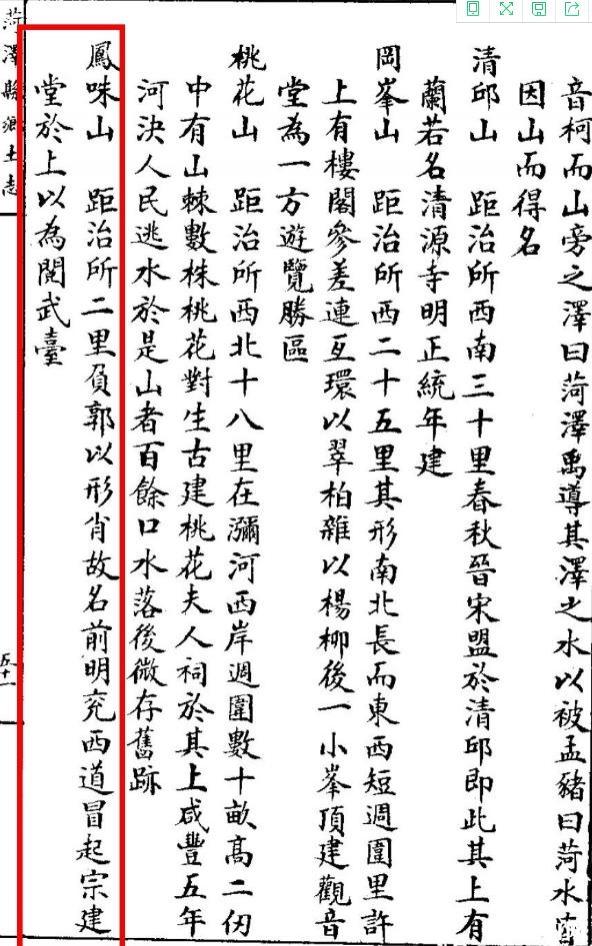 音柯而山旁之澤曰菏澤禹導其澤之水以被孟豬曰菏水
因山而得名
清邱山 距治所西南三十里春秋晉宋盟於清邱即此其上有
蘭若名清源寺明正統年建
岡峯山 距治所西二十五里其形南北長而東西短週圍里許
上有樓閣參差連亙環以翠柏雜以楊柳後一小峯頂建觀音
堂為一方遊覽勝區
桃花山 距治所西北十八里在瀰河西岸週圍數十畝高二仞
中有山棘數株桃花對生古建桃花夫人祠於其上咸豐五年
河決人民逃水於是山者百餘口水落後微存舊跡
鳳味山 距治所二里負郭以形肖故名前明兖西道冒起宗建
堂於上以為閱武臺
菏澤縣鄉土志
五十一